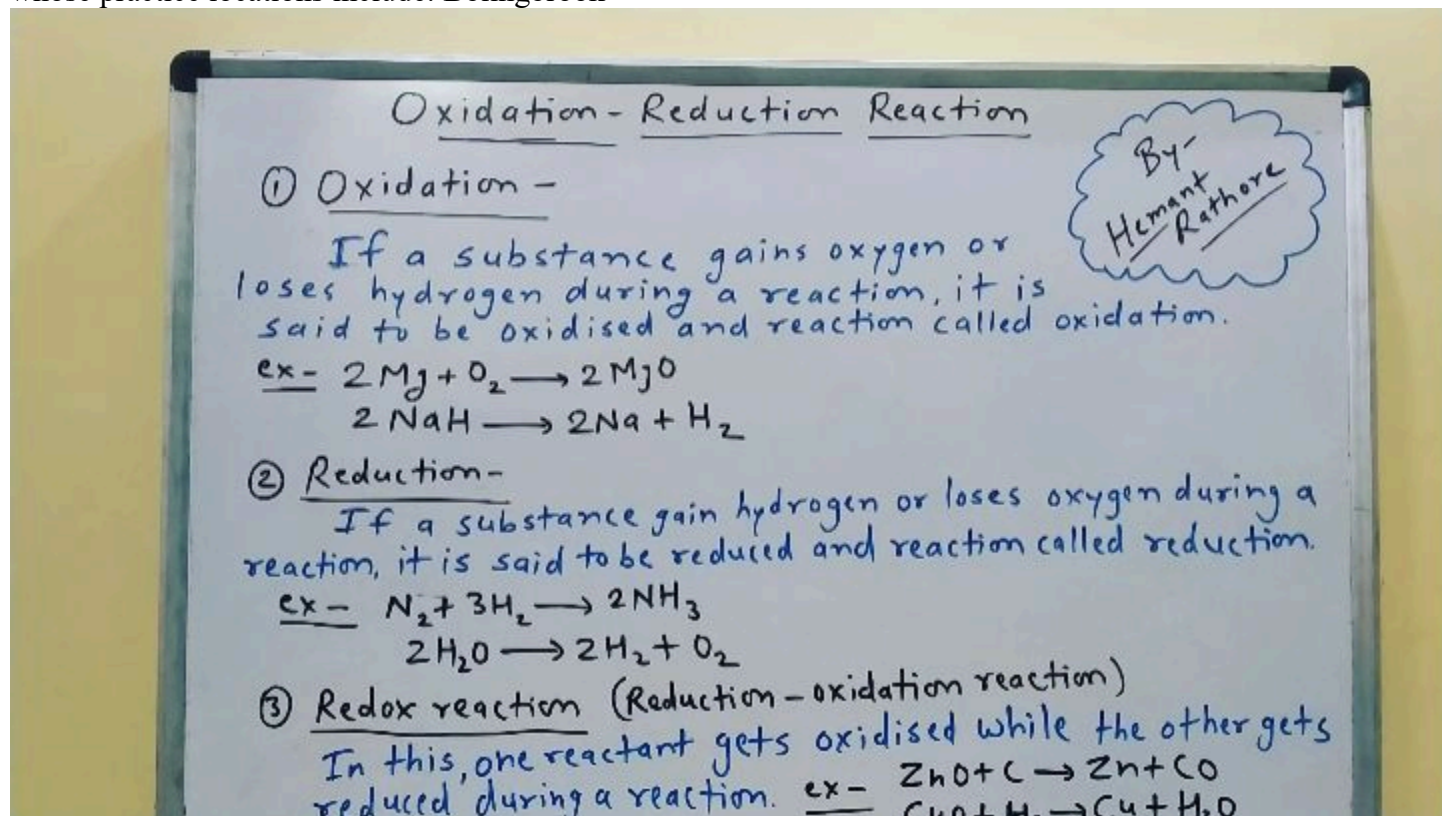 Oxidation - Reduction Reaction
By-
Hemant
Rathore
① Oxidation -
If a substance gains oxygen or
loses hydrogen during a reaction, it is
said to be oxidised and reaction called oxidation.
ex- 2Mg + O₂ → 2MgO
2NaH → 2Na + H₂
② Reduction-
If a substance gain hydrogen or loses oxygen during a
reaction, it is said to be reduced and reaction called reduction.
ex- N₂ + 3H₂ → 2NH₃
2H₂O → 2H₂ + O₂
③ Redox reaction (Reduction - oxidation reaction)
In this, one reactant gets oxidised while the other gets
reduced during a reaction. ex- ZnO + C → Zn + CO
→ Cu + H₂O